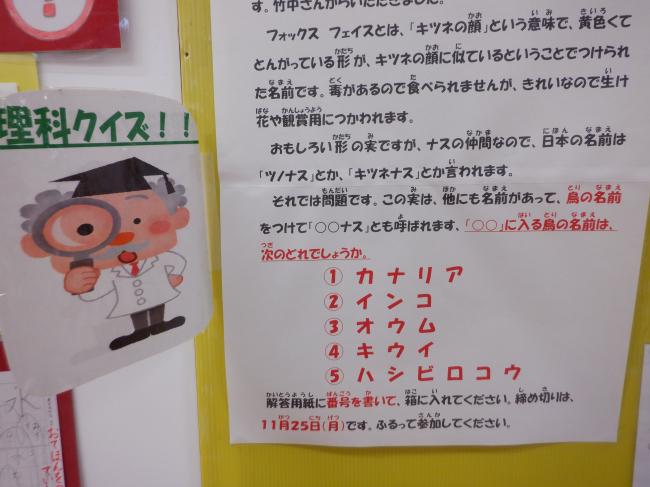 す。竹中さんからいただきました。
フォックス フェイスとは、「キツネの顔」という意味で、黄色くて
とんがっている形が、キツネの顔に似ているということでつけられ
た名前です。毒があるので食べられませんが、きれいなので生け
花や観賞用につかわれます。
おもしろい形の実ですが、ナスの仲間なので、日本の名前は
「ツノナス」とか、「キツネナス」とか言われます。
それでは問題です。この実は、他にも名前があって、鳥の名前
をつけて「○○ナス」とも呼ばれます、「○○」に入る鳥の名前は、
次のどれでしょうか。
① カナリア
② インコ
③ オウム
④ キウイ
⑤ ハシビロコウ
解答用紙に番号を書いて、箱に入れてください。締め切りは、
11月25日(月)です。ふるって参加してください。
理科クイズ!!